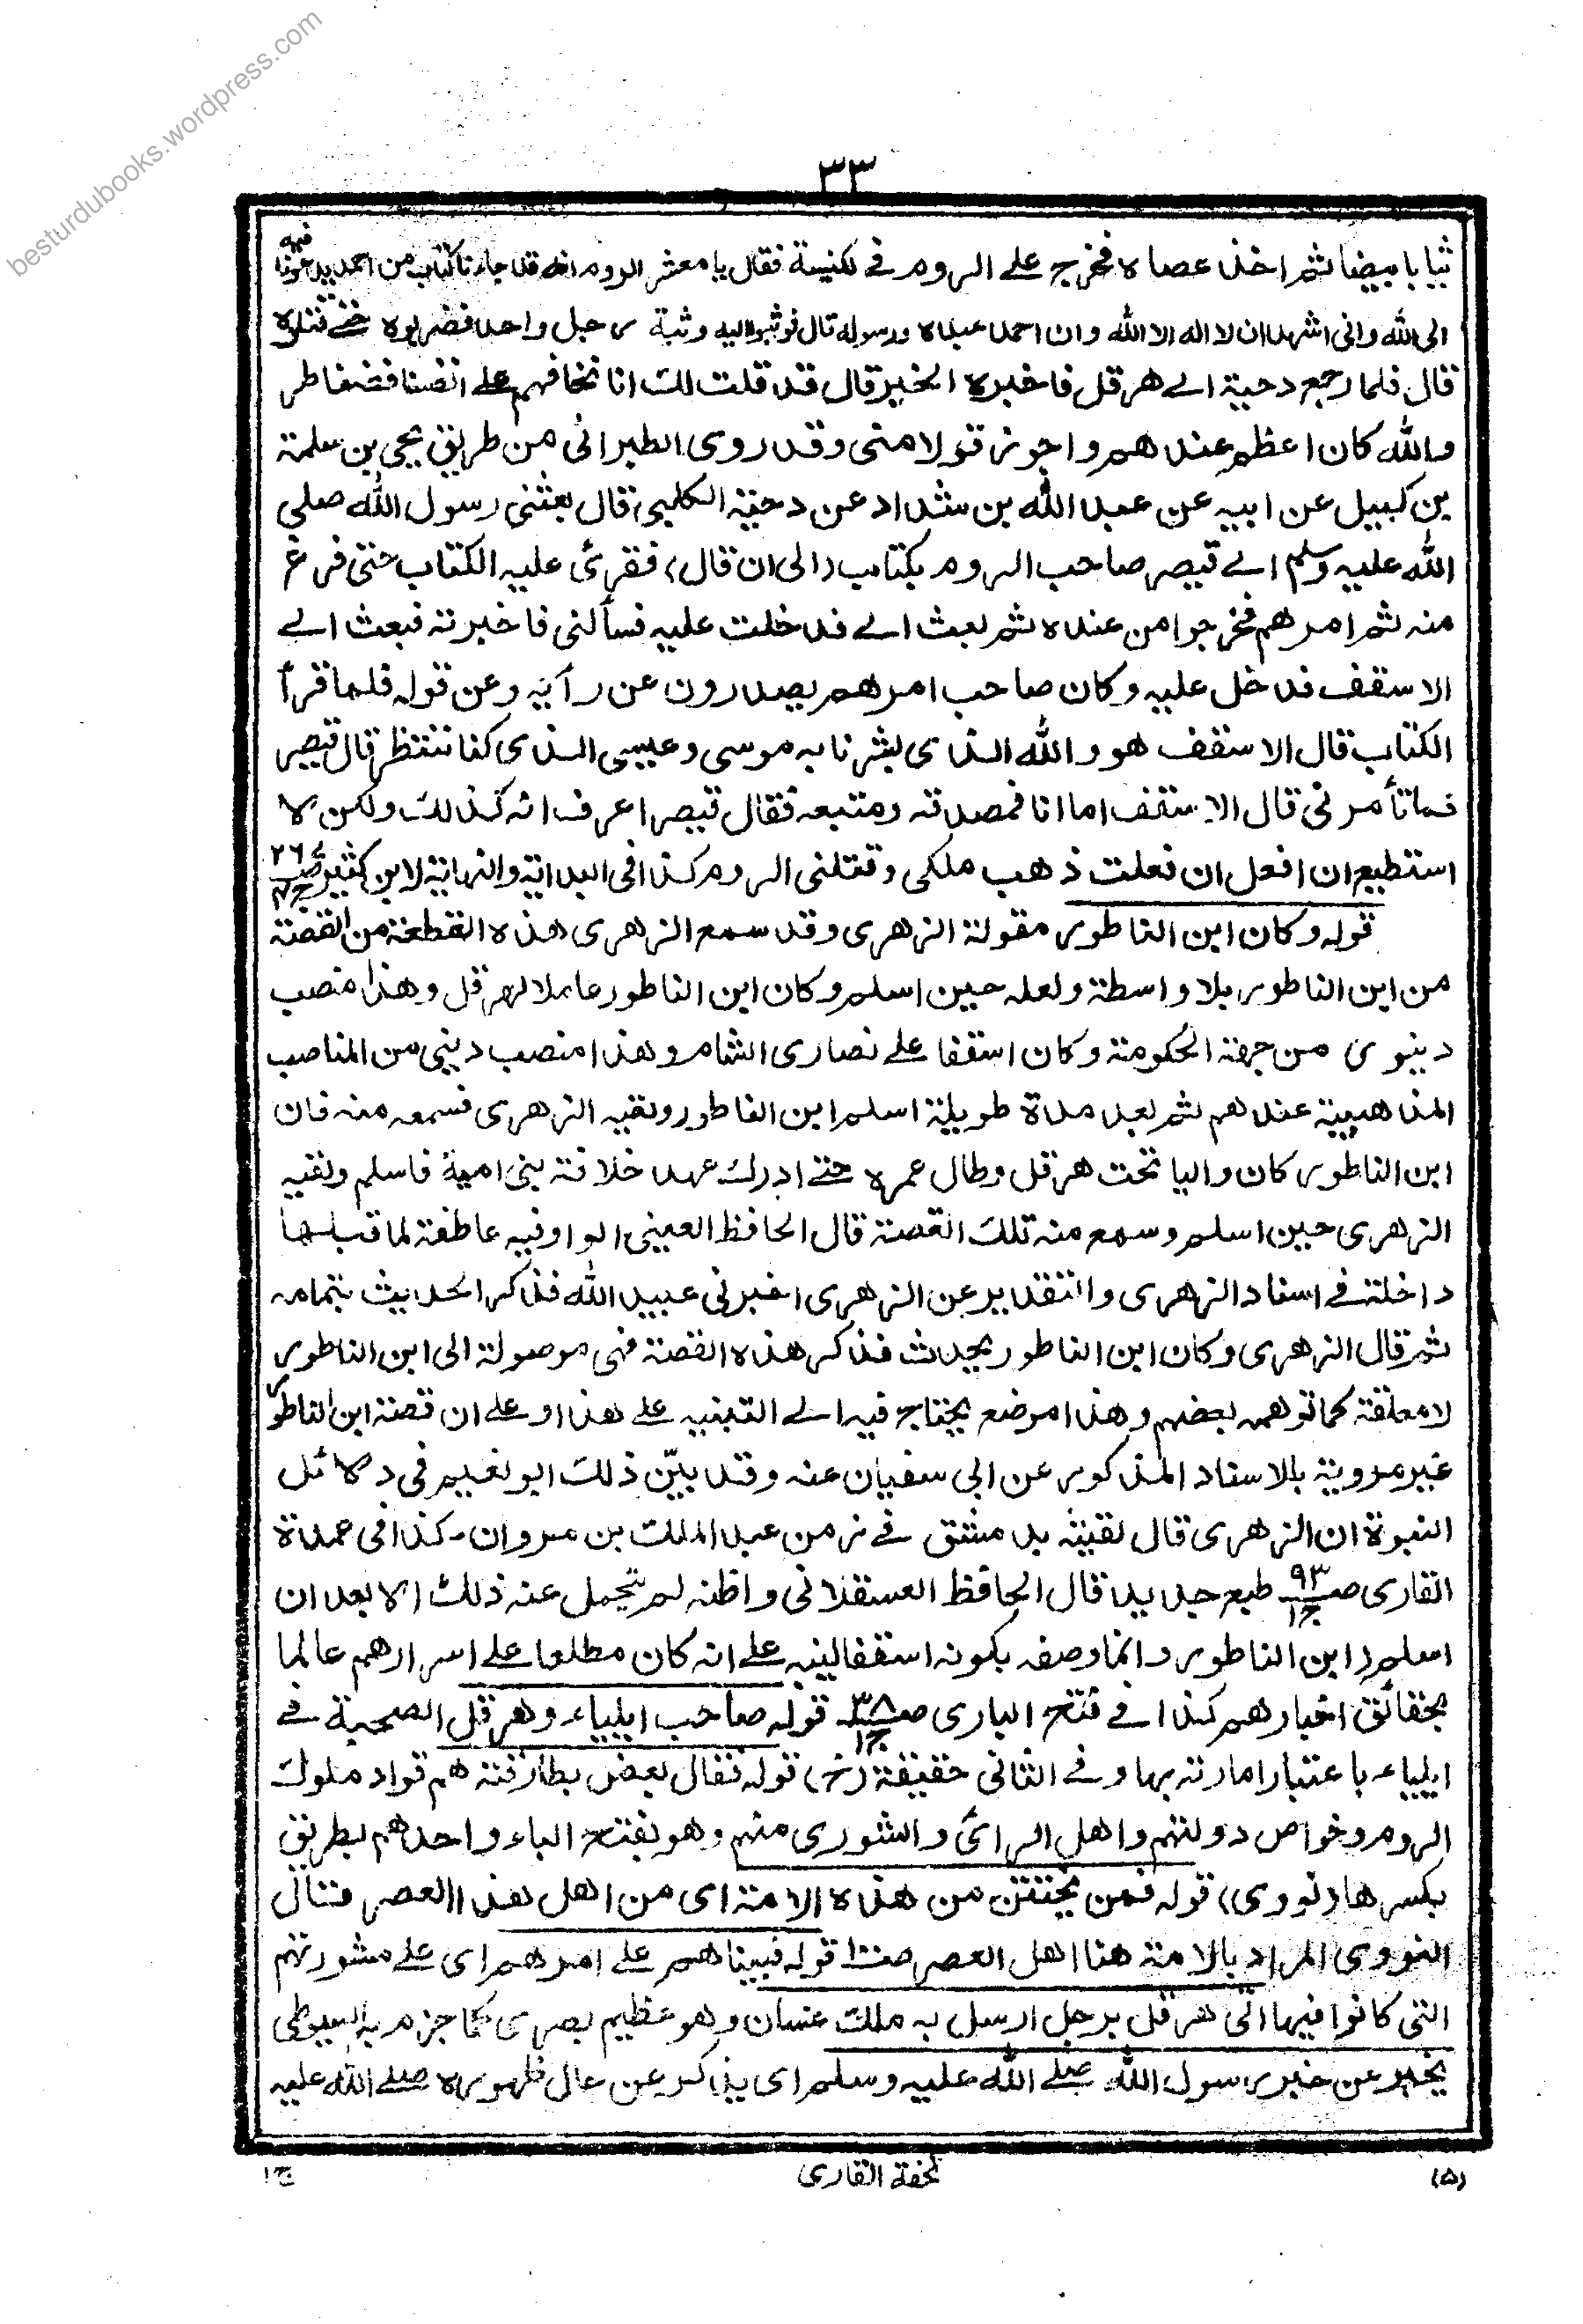 besturdubooks.wordpress.com
٣٣
ثيابا بيضا ثم اخذ عصاه فخرج على الروم فى لكنيسة فقال يا معشر الروم انه قد جاءنا كتاب من احمد يدعونا فيه
الى الله وانى اشهد ان لا اله الا الله وان احمد عبده ورسوله قال فوثبوا اليه وثبة رجل واحد فضربوه حتى قتلوه
قال فلما رجع دحية الى هرقل فاخبره الخبر قال قد قلت لك انا نخافهم على انفسنا فضغاطر
والله كان اعظم عندهم واجوز قولا منى وقد روى الطبرانى من طريق يحيى بن سلمة
بن كهيل عن ابيه عن عبد الله بن شداد عن دحية الكلبى قال بعثنى رسول الله صلى
الله عليه وسلم الى قيصر صاحب الروم بكتاب (الى ان قال) فقرئ عليه الكتاب حتى فرغ
منه ثم امرهم فخرجوا من عنده ثم بعث الى فدخلت عليه فسألنى فاخبرته فبعث الى
الاسقف فدخل عليه وكان صاحب امرهم يصدرون عن رأيه وعن قوله فلما قرأ
الكتاب قال الاسقف هو والله الذى بشرنا به موسى وعيسى الذى كنا ننتظر قال قيصر
فما تأمرنى قال الاسقف اما انا فمصدقه ومتبعه فقال قيصر اعرف انه كذلك ولكن لا
استطيع ان افعل ان فعلت ذهب ملكى وقتلنى الروم كذا فى البداية والنهاية لابن كثير ص ٢٦٧ ج ٤
قوله وكان ابن الناطور مقولة الزهرى وقد سمع الزهرى هذه القطعة من القصة
من ابن الناطور بلا واسطة ولعله حين اسلم وكان ابن الناطور عاملا لهرقل وهذا منصب
دينوى من جهة الحكومة وكان اسقفا على نصارى الشام وهذا منصب دينى من المناصب
المذهبية عندهم ثم بعد مدة طويلة اسلم ابن الناطور ولقيه الزهرى فسمعه منه فان
ابن الناطور كان واليا تحت هرقل وطال عمره حتى ادرك عهد خلافة بنى امية فاسلم ولقيه
الزهرى حين اسلم وسمع منه تلك القصة قال الحافظ العينى الواو فيه عاطفة لما قبلها
داخلة فى اسناد الزهرى والتقدير عن الزهرى اخبرنى عبيد الله فذكر الحديث بتمامه
ثم قال الزهرى وكان ابن الناطور يحدث فذكر هذه القصة فهى موصولة الى ابن الناطور
لا معلقة كما توهمه بعضهم وهذا موضع يحتاج فيه الى التنبيه على هذا وعلى ان قصة ابن الناطور
غير مروية بالاسناد المذكور عن ابى سفيان عنه وقد بيّن ذلك ابو نعيم فى دلائل
النبوة ان الزهرى قال لقيته بدمشق فى زمن عبد الملك بن مروان - كذا فى عمدة
القارى ص ٩٣ ج ١ طبع جديد قال الحافظ العسقلانى واظنه لم يتحمل عنه ذلك الا بعد ان
اسلم (ابن الناطور) وانما وصفه بكونه اسقفا لينبه على انه كان مطلعا على اسرارهم عالما
بحقائق اخبارهم كذا فى فتح البارى ص ٣٨ ج ١ قوله صاحب ايلياء وهرقل الصحبة فى
ايلياء باعتبار امارته بها وفى الثانى حقيقة (خ) قوله فقال بعض بطارقته هم قواد ملوك
الروم وخواص دولتهم واهل الرائ والشورى منهم وهو بفتح الباء واحدهم بطريق
بكسرها (نووى) قوله فمن يختتن من هذه الامة اى من اهل هذا العصر قال
النووى المراد بالامة هنا اهل العصر قوله فبينا هم على امرهم اى على مشورتهم
التى كانوا فيها اتى هرقل برجل ارسل به ملك غسان وهو عظيم بصرى كما جزم به السيوطى
يخبر عن خبر رسول الله صلى الله عليه وسلم اى يذاكر عن حال ظهوره صلى الله عليه
(۵)
تحفة القارى
ج ١